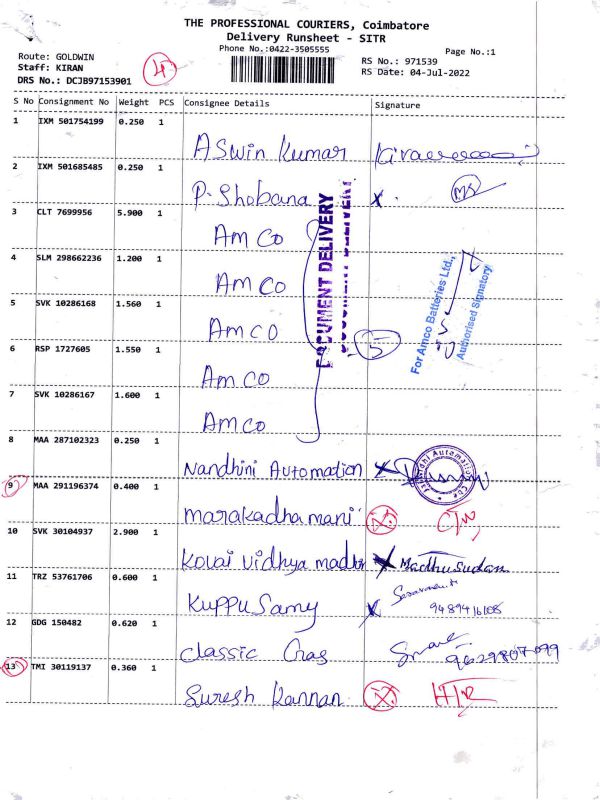 THE PROFESSIONAL COURIERS, Coimbatore
Delivery Runsheet - SITR
Phone No.:0422-3505555
Page No.:1
Route: GOLDWIN
Staff: KIRAN
DRS No.: DCJB97153901
4
RS No.: 971539
RS Date: 04-Jul-2022
S No Consignment No Weight PCS Consignee Details Signature
1 IXM 501754199 0.250 1
Aswin Kumar
2 IXM 501685485 0.250 1
P. Shobana x
3 CLT 7699956 5.900 1
Amco
4 SLM 298662236 1.200 1
Amco
5 SVK 10286168 1.560 1
Amco
6 RSP 1727605 1.550 1
Amco
7 SVK 10286167 1.600 1
Amco
DOCUMENT DELIVERY
DOCUMENT DELIVERY
5
For Amco Batteries Ltd.,
Authorised Signatory
8 MAA 287102323 0.250 1
Nandhini Automation x
9 MAA 291196374 0.400 1
marakadha mani
10 SVK 30104937 2.900 1
Kovai Vidhya madhir x Madhusudan
11 TRZ 53761706 0.600 1
Kuppu Samy x
9489416108
12 GDG 150482 0.620 1
Classic
9629807099
13 TMI 30119137 0.360 1
Suresh Kannan